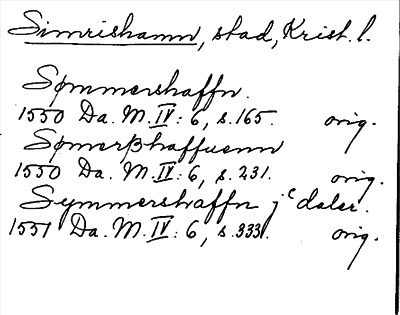 Simrishamn, stad, Krist. l.
Sømmershaffn.
1550 Da. M. IV: 6, s. 165. orig.
Sømerßhaffuenn
1550 Da. M. IV: 6, s. 231. orig.
Symmershaffn jᶜ daler.
1551 Da. M. IV: 6, s. 333. orig.